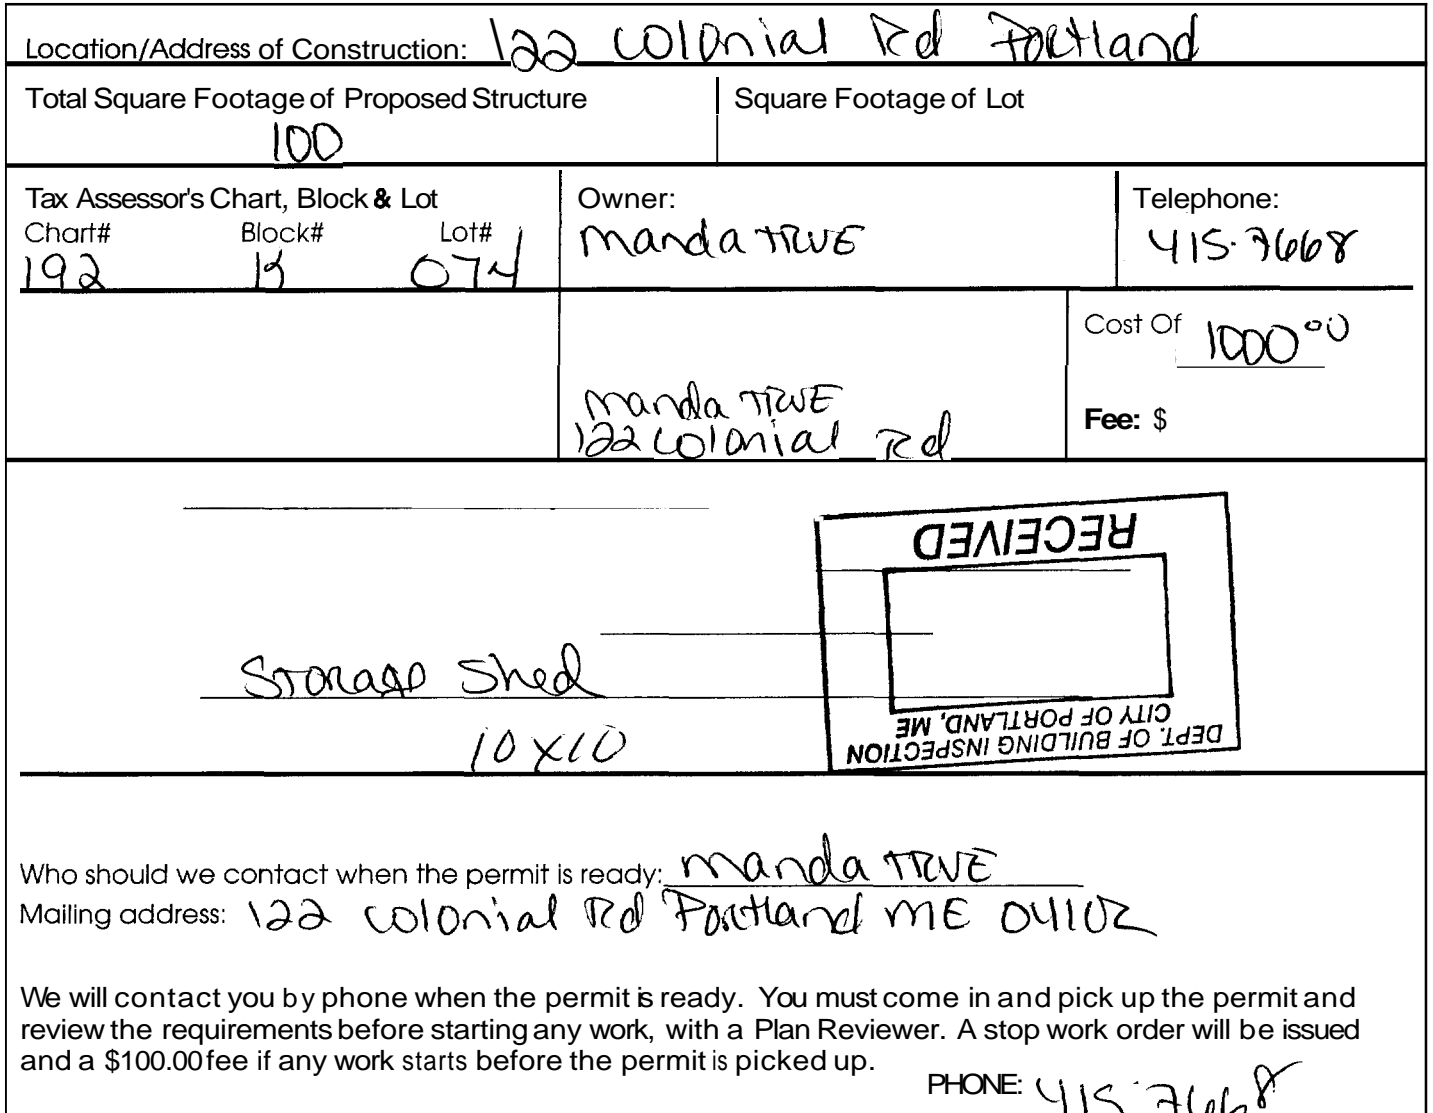 Location/Address of Construction: 122 Colonial Rd Portland
Total Square Footage of Proposed Structure
100
Square Footage of Lot
Tax Assessor's Chart, Block & Lot
Chart# Block# Lot#
192 K 074
Owner:
Manda TRUE
Telephone:
415.7668
Manda TRUE
122 Colonial Rd
Cost Of 1000 00
Fee: $
Storage Shed
10 x 10
RECEIVED
DEPT. OF BUILDING INSPECTION
CITY OF PORTLAND, ME
Who should we contact when the permit is ready: Manda TRUE
Mailing address: 122 Colonial Rd Portland ME 04102
We will contact you by phone when the permit is ready. You must come in and pick up the permit and
review the requirements before starting any work, with a Plan Reviewer. A stop work order will be issued
and a $100.00 fee if any work starts before the permit is picked up.
PHONE: 415.7668